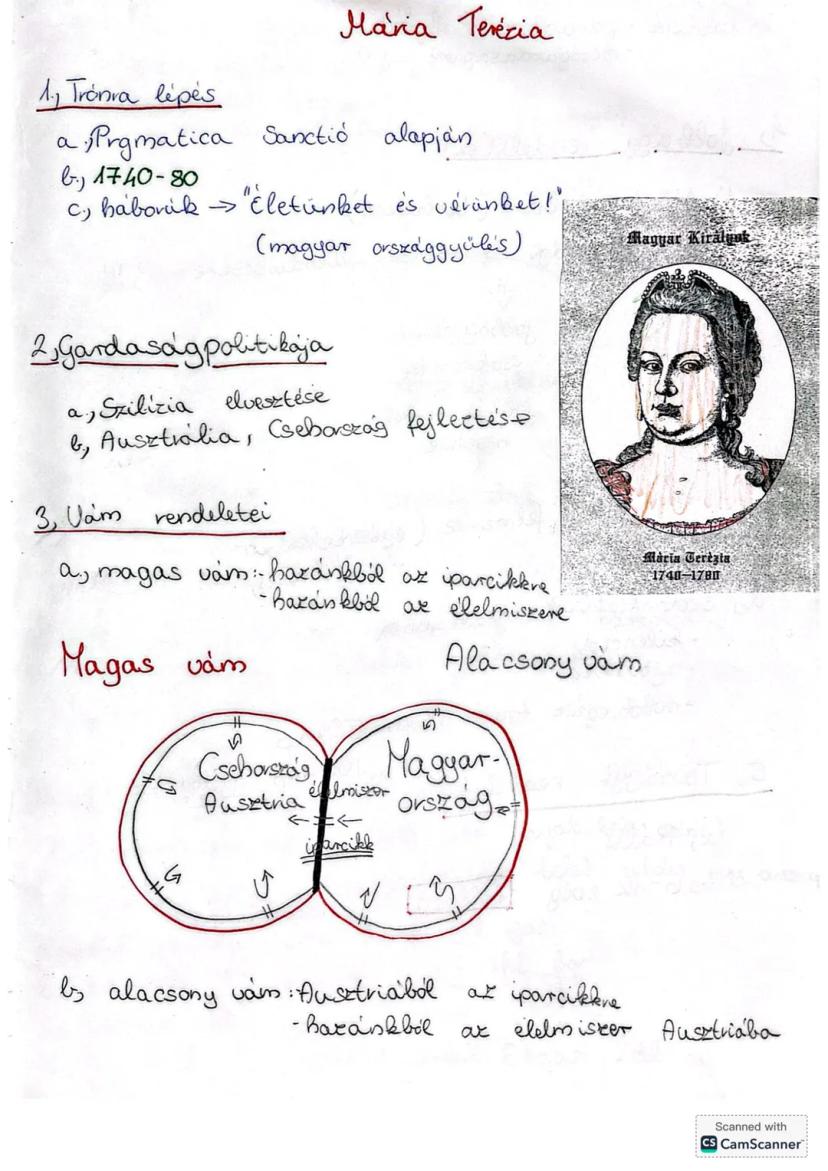 Mária Terézia
1, Trónra lépés
a., Prgmatica Sanctió alapján
b., 1740-80
c., háborúk → "Életünket és vérünket!"
(magyar országgyűlés)
Magyar Királyok
Mária Terézia
1740-1780
2, Gardaságpolitikája
a., Szilízia elvesztése
b, Ausztrália, Csehország fejleztés
3, Vám rendeletei
a., magas vám:- hazánkból az iparcikkre
- hazánkból az élelmiszere
Magas vám Alacsony vám
Csehország
Ausztria
Magyar-
ország
élelmiszer
← ←
iparcikk
b, alacsony vám: Ausztriából az iparcikkre
- hazánkból az élelmiszer Ausztriába
Scanned with
CS CamScanner